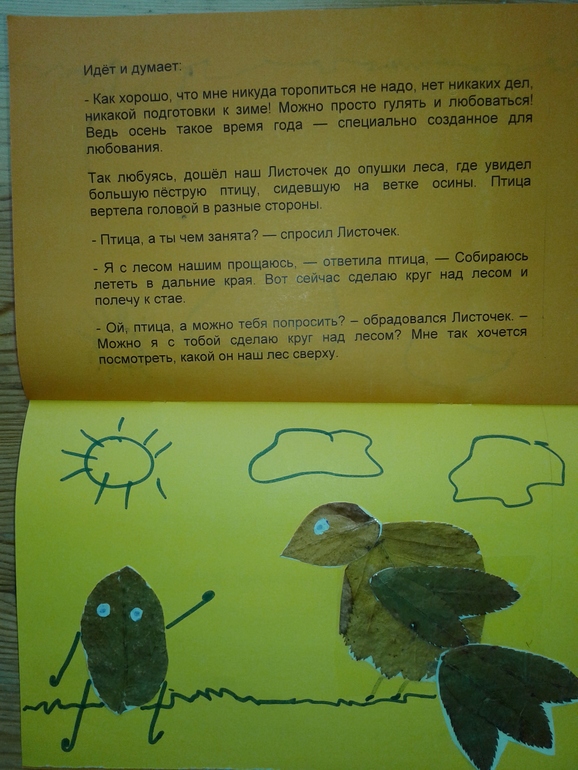 Идёт и думает:
- Как хорошо, что мне никуда торопиться не надо, нет никаких дел,
никакой подготовки к зиме! Можно просто гулять и любоваться!
Ведь осень такое время года — специально созданное для
любования.
Так любуясь, дошёл наш Листочек до опушки леса, где увидел
большую пёструю птицу, сидевшую на ветке осины. Птица
вертела головой в разные стороны.
- Птица, а ты чем занята? — спросил Листочек.
- Я с лесом нашим прощаюсь, — ответила птица, — Собираюсь
лететь в дальние края. Вот сейчас сделаю круг над лесом и
полечу к стае.
- Ой, птица, а можно тебя попросить? – обрадовался Листочек. –
Можно я с тобой сделаю круг над лесом? Мне так хочется
посмотреть, какой он наш лес сверху.